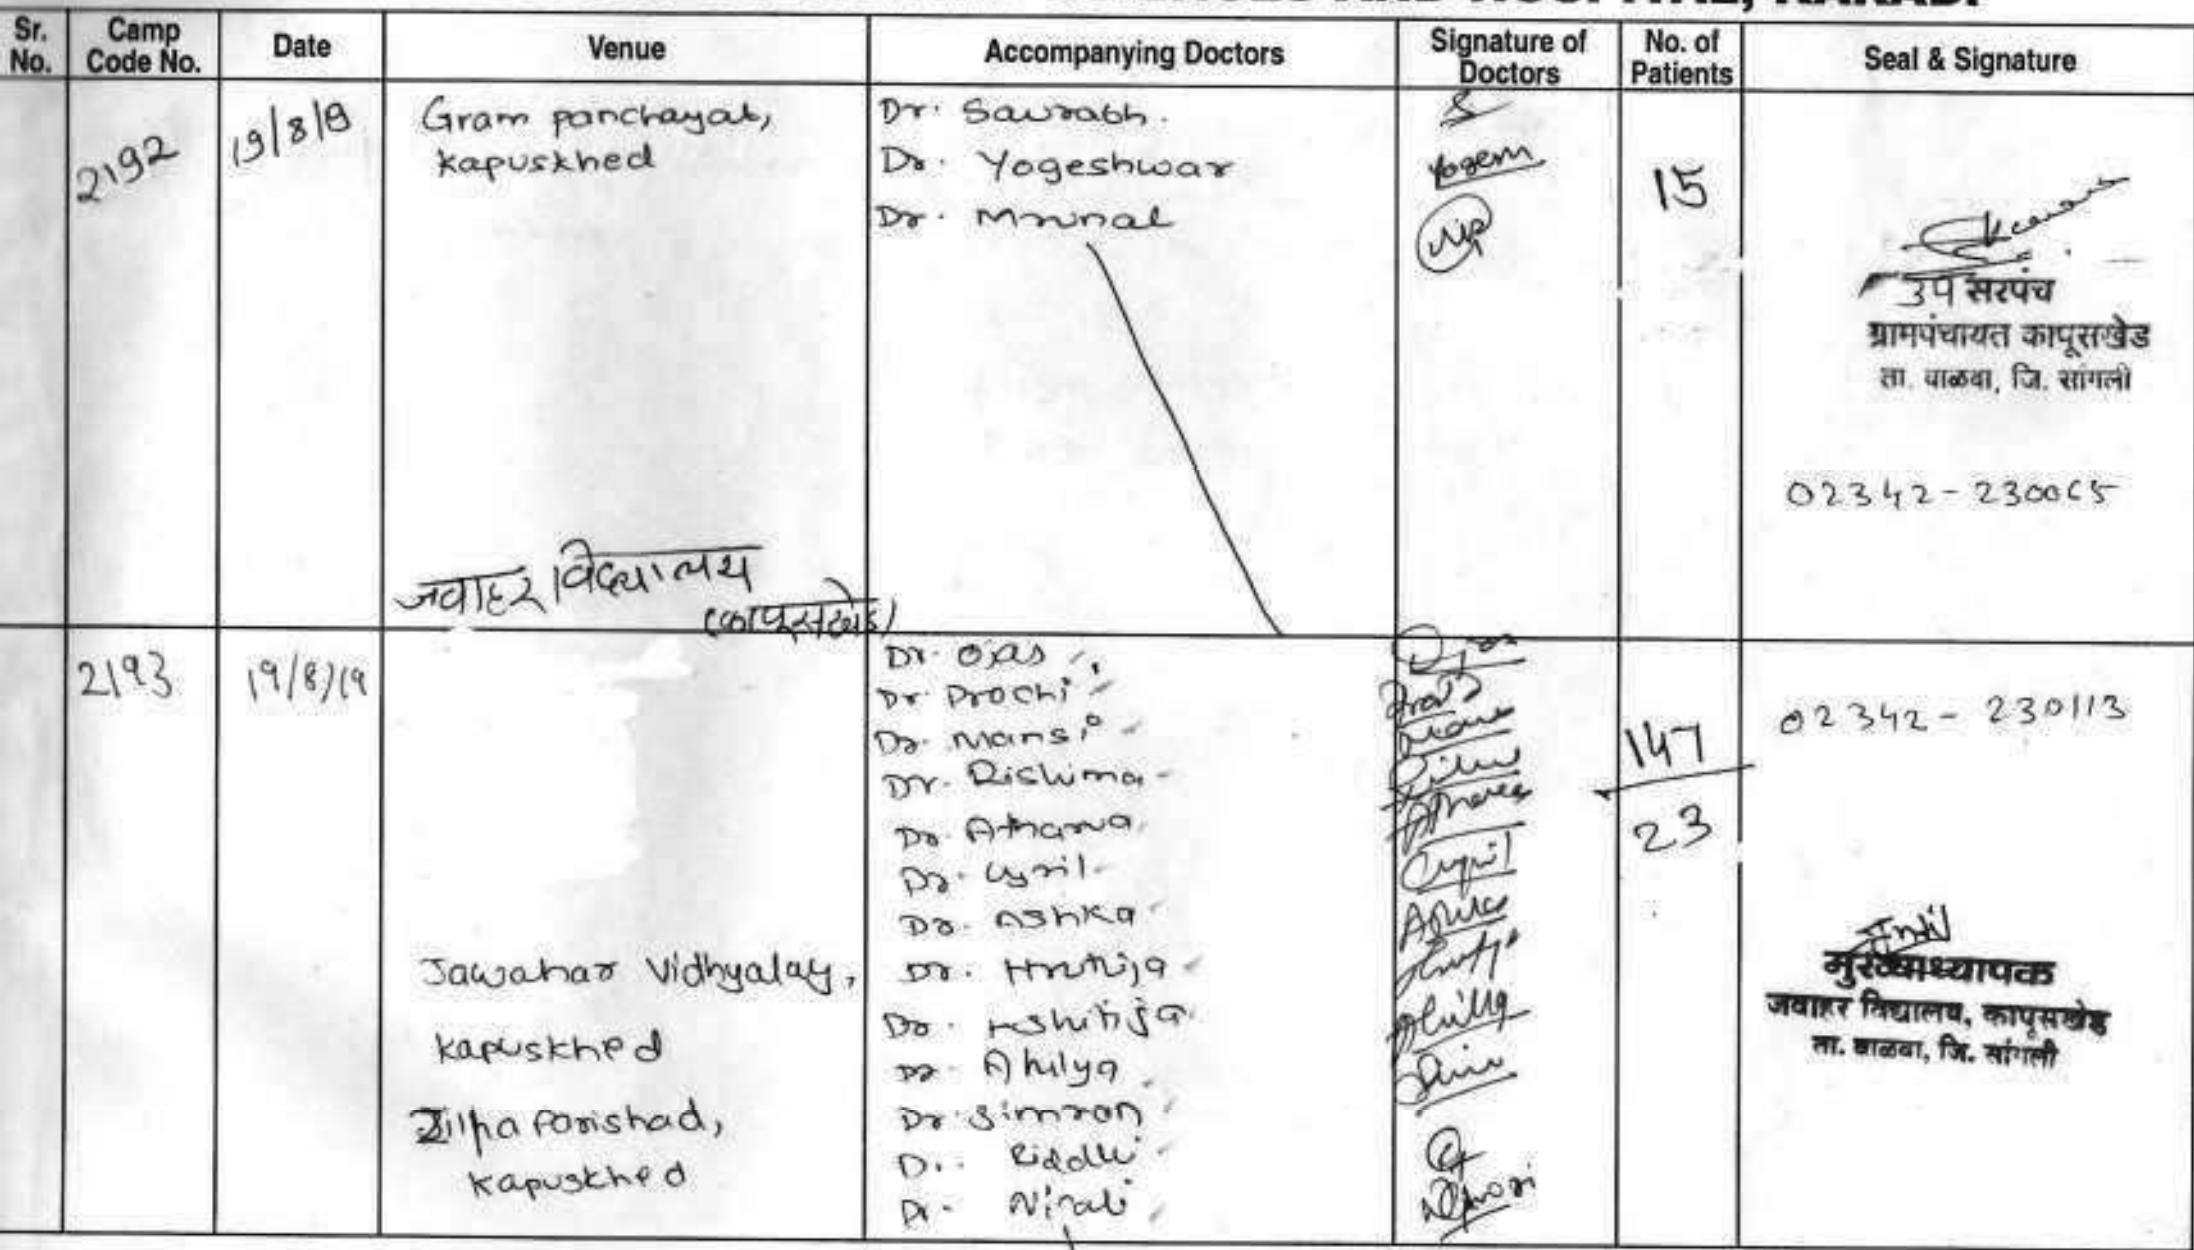 Sr. No.
Camp Code No.
Date
Venue
Accompanying Doctors
Signature of Doctors
No. of Patients
Seal & Signature
2192
19/8/19
Gram panchayat,
kapuskhed
Dr. Saurabh.
Dr. Yogeshwar
Dr. Mrunal
15
उप सरपंच
ग्रामपंचायत कापूसखेड
ता. वाळवा, जि. सांगली
02342-230065
जवाहर विद्यालय
(कापूसखेड)
2193
19/8/19
Jawahar Vidhyalay,
kapuskhed
Zilha Parishad,
kapuskhed
Dr. Ojas
Dr. Prachi
Dr. Mansi
Dr. Rishima
Dr. Atharva
Dr. Cyril
Dr. Ashka
Dr. Hrutuja
Dr. Kshitija
Dr. Ahilya
Dr. Simran
Dr. Riddhi
Dr. Nirali
147
23
02342 - 230113
मुख्याध्यापक
जवाहर विद्यालय, कापूसखेड
ता. वाळवा, जि. सांगली